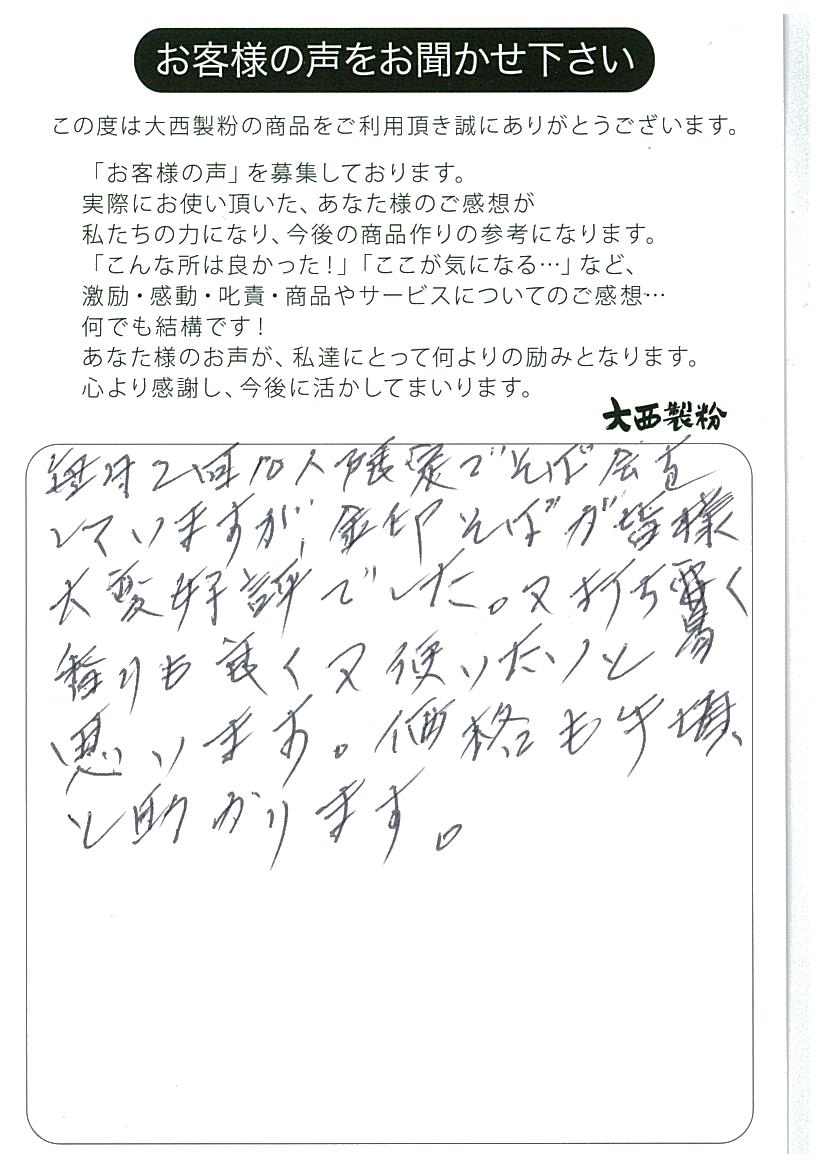 お客様の声をお聞かせ下さい
この度は大西製粉の商品をご利用頂き誠にありがとうございます。
「お客様の声」を募集しております。
実際にお使い頂いた、あなた様のご感想が
私たちの力になり、今後の商品作りの参考になります。
「こんな所は良かった！」「ここが気になる…」など、
激励・感動・叱責・商品やサービスについてのご感想…
何でも結構です！
あなた様のお声が、私達にとって何よりの励みとなります。
心より感謝し、今後に活かしてまいります。
大西製粉
毎月2回10人隠家でそば会を
していますが、金印そばが皆様
大変好評でした。又打ち易く
香りも良く又使いたいと
思います。価格も手頃、
と助かります。